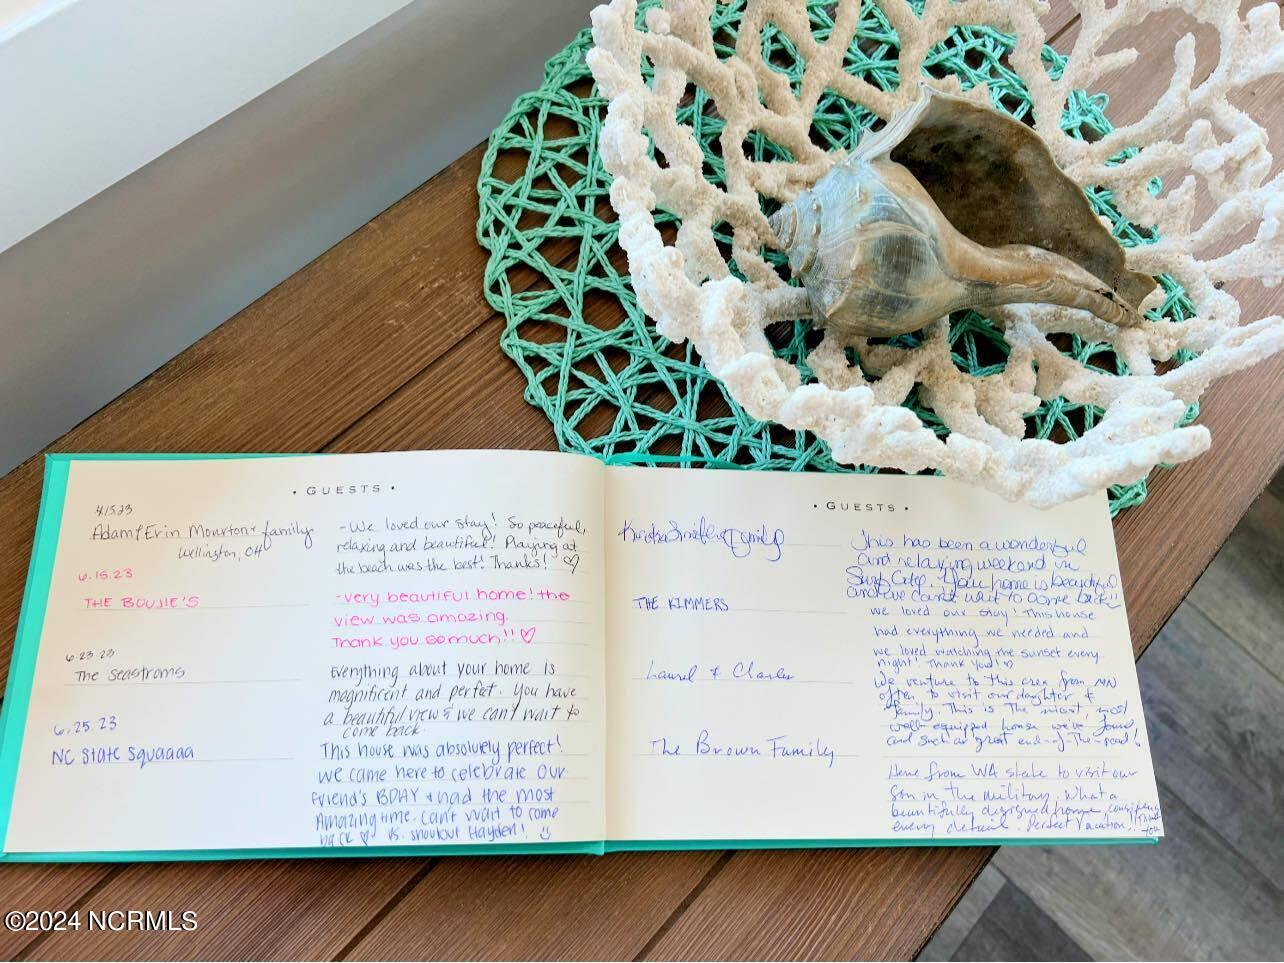 • GUESTS •
4.15.23
Adam & Erin Mourton + family
Wellington, OH
- We loved our stay! So peaceful,
relaxing and beautiful! Playing at
the beach was the best! Thanks! ♡
6.15.23
THE BOUJIE'S
- very beautiful home! the
view was amazing.
Thank you so much!! ♡
6.23.23
The Seastroms
Everything about your home is
magnificent and perfect. You have
a beautiful view & we can't wait to
come back.
6.25.23
NC State Squaaaa
This house was absolutely perfect!
we came here to celebrate our
friend's BDAY + had the most
Amazing time. Can't wait to come
back ♡ PS. shoutout Hayden! ☺
• GUESTS •
& Family
This has been a wonderful
and relaxing weekend in
Surf City. Your home is beautiful
and we can't wait to come back!!
THE KIMMERS
we loved our stay! This house
had everything we needed and
we loved watching the sunset every
night! Thank you! ♡
Laurel & Charles
We venture to this area from MN
often to visit our daughter &
family. This is the most, most
well-equipped house we've found
and such a great end-of-the-road!
The Brown Family
Here from WA state to visit our
son in the military. What a
beautifully designed home,
every detail. Perfect vacation!! Thank
you
©2024 NCRMLS